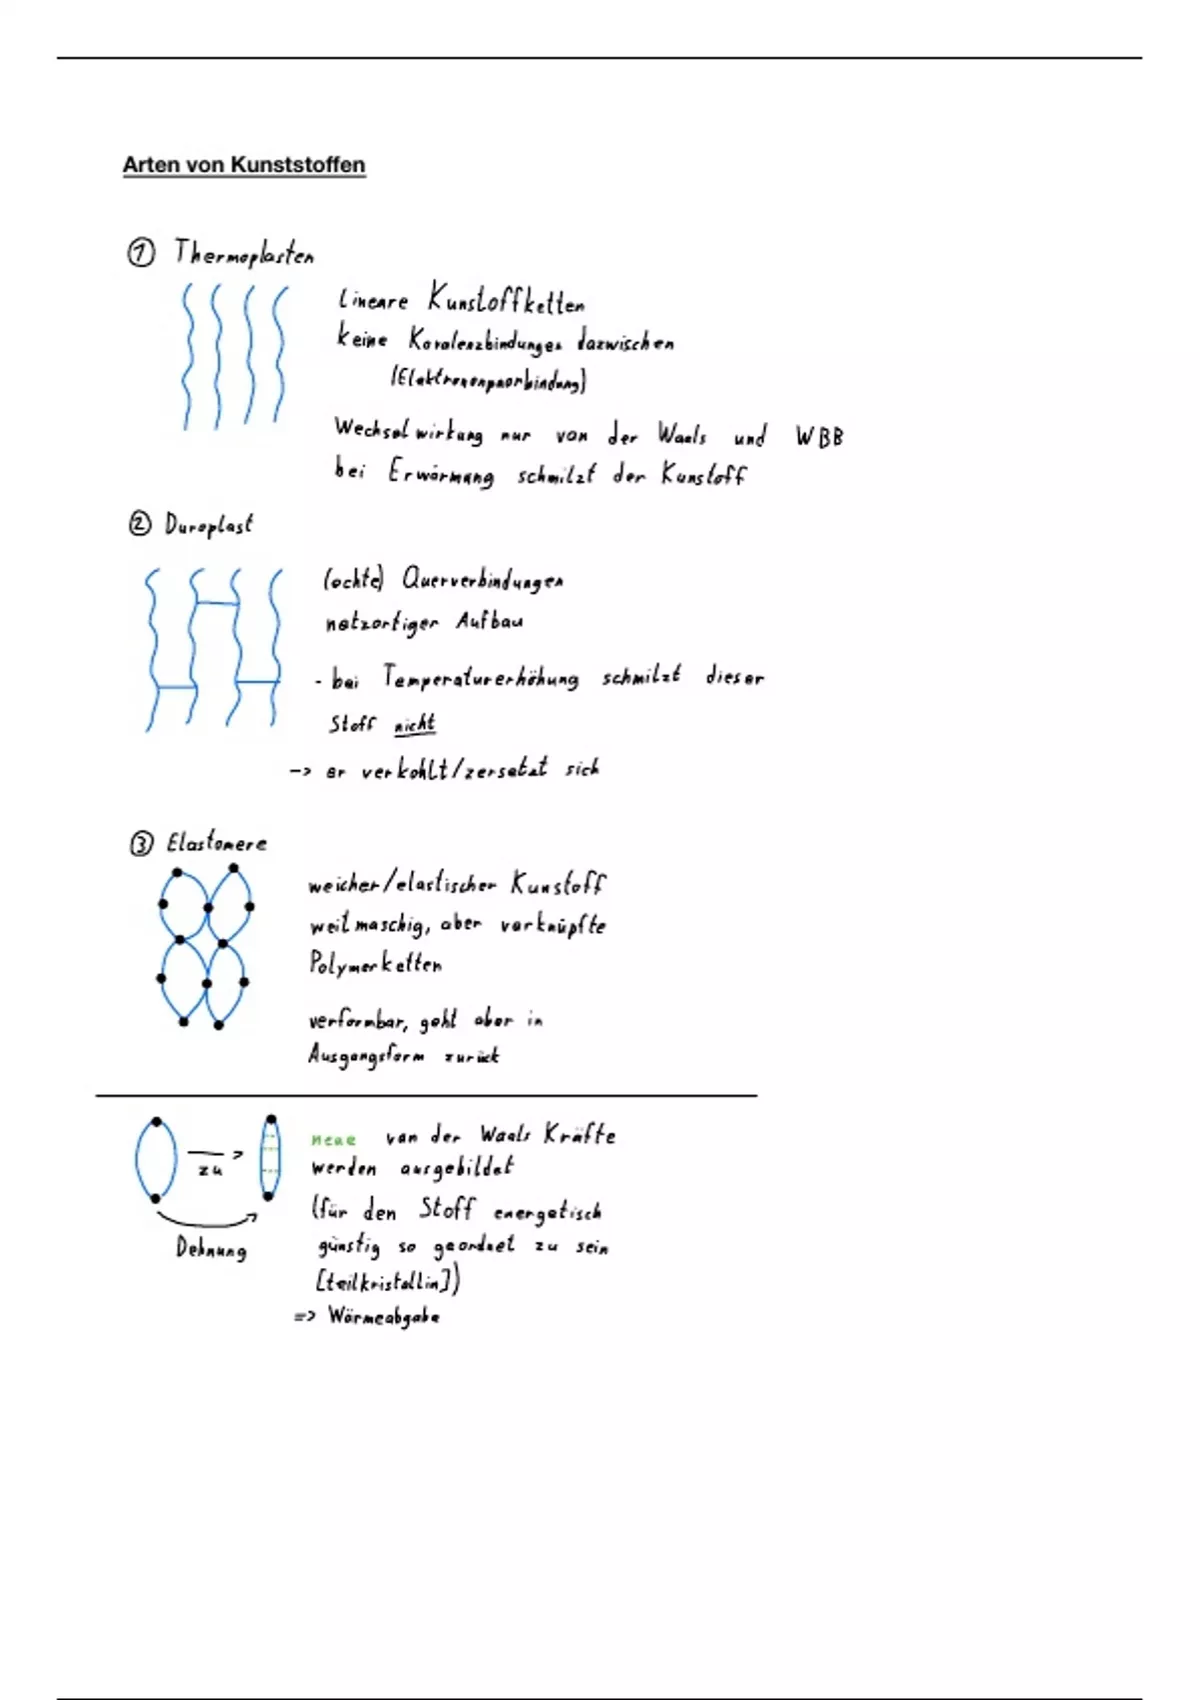 Arten von Kunststoffen
① Thermoplasten
Lineare Kunstoffketten
keine Kovalenzbindungen dazwischen
(Elektronenpaarbindung)
Wechselwirkung nur von der Waals und WBB
bei Erwärmung schmilzt der Kunstoff
② Duroplast
(echte) Querverbindungen
netzartiger Aufbau
- bei Temperaturerhöhung schmilzt dieser
Stoff nicht
-> er verkohlt/zersetzt sich
③ Elastomere
weicher/elastischer Kunstoff
weitmaschig, aber verknüpfte
Polymerketten
verformbar, geht aber in
Ausgangsform zurück
zu
Dehnung
neue van der Waals Kräfte
werden ausgebildet
(für den Stoff energetisch
günstig so geordnet zu sein
[teilkristallin])
=> Wärmeabgabe